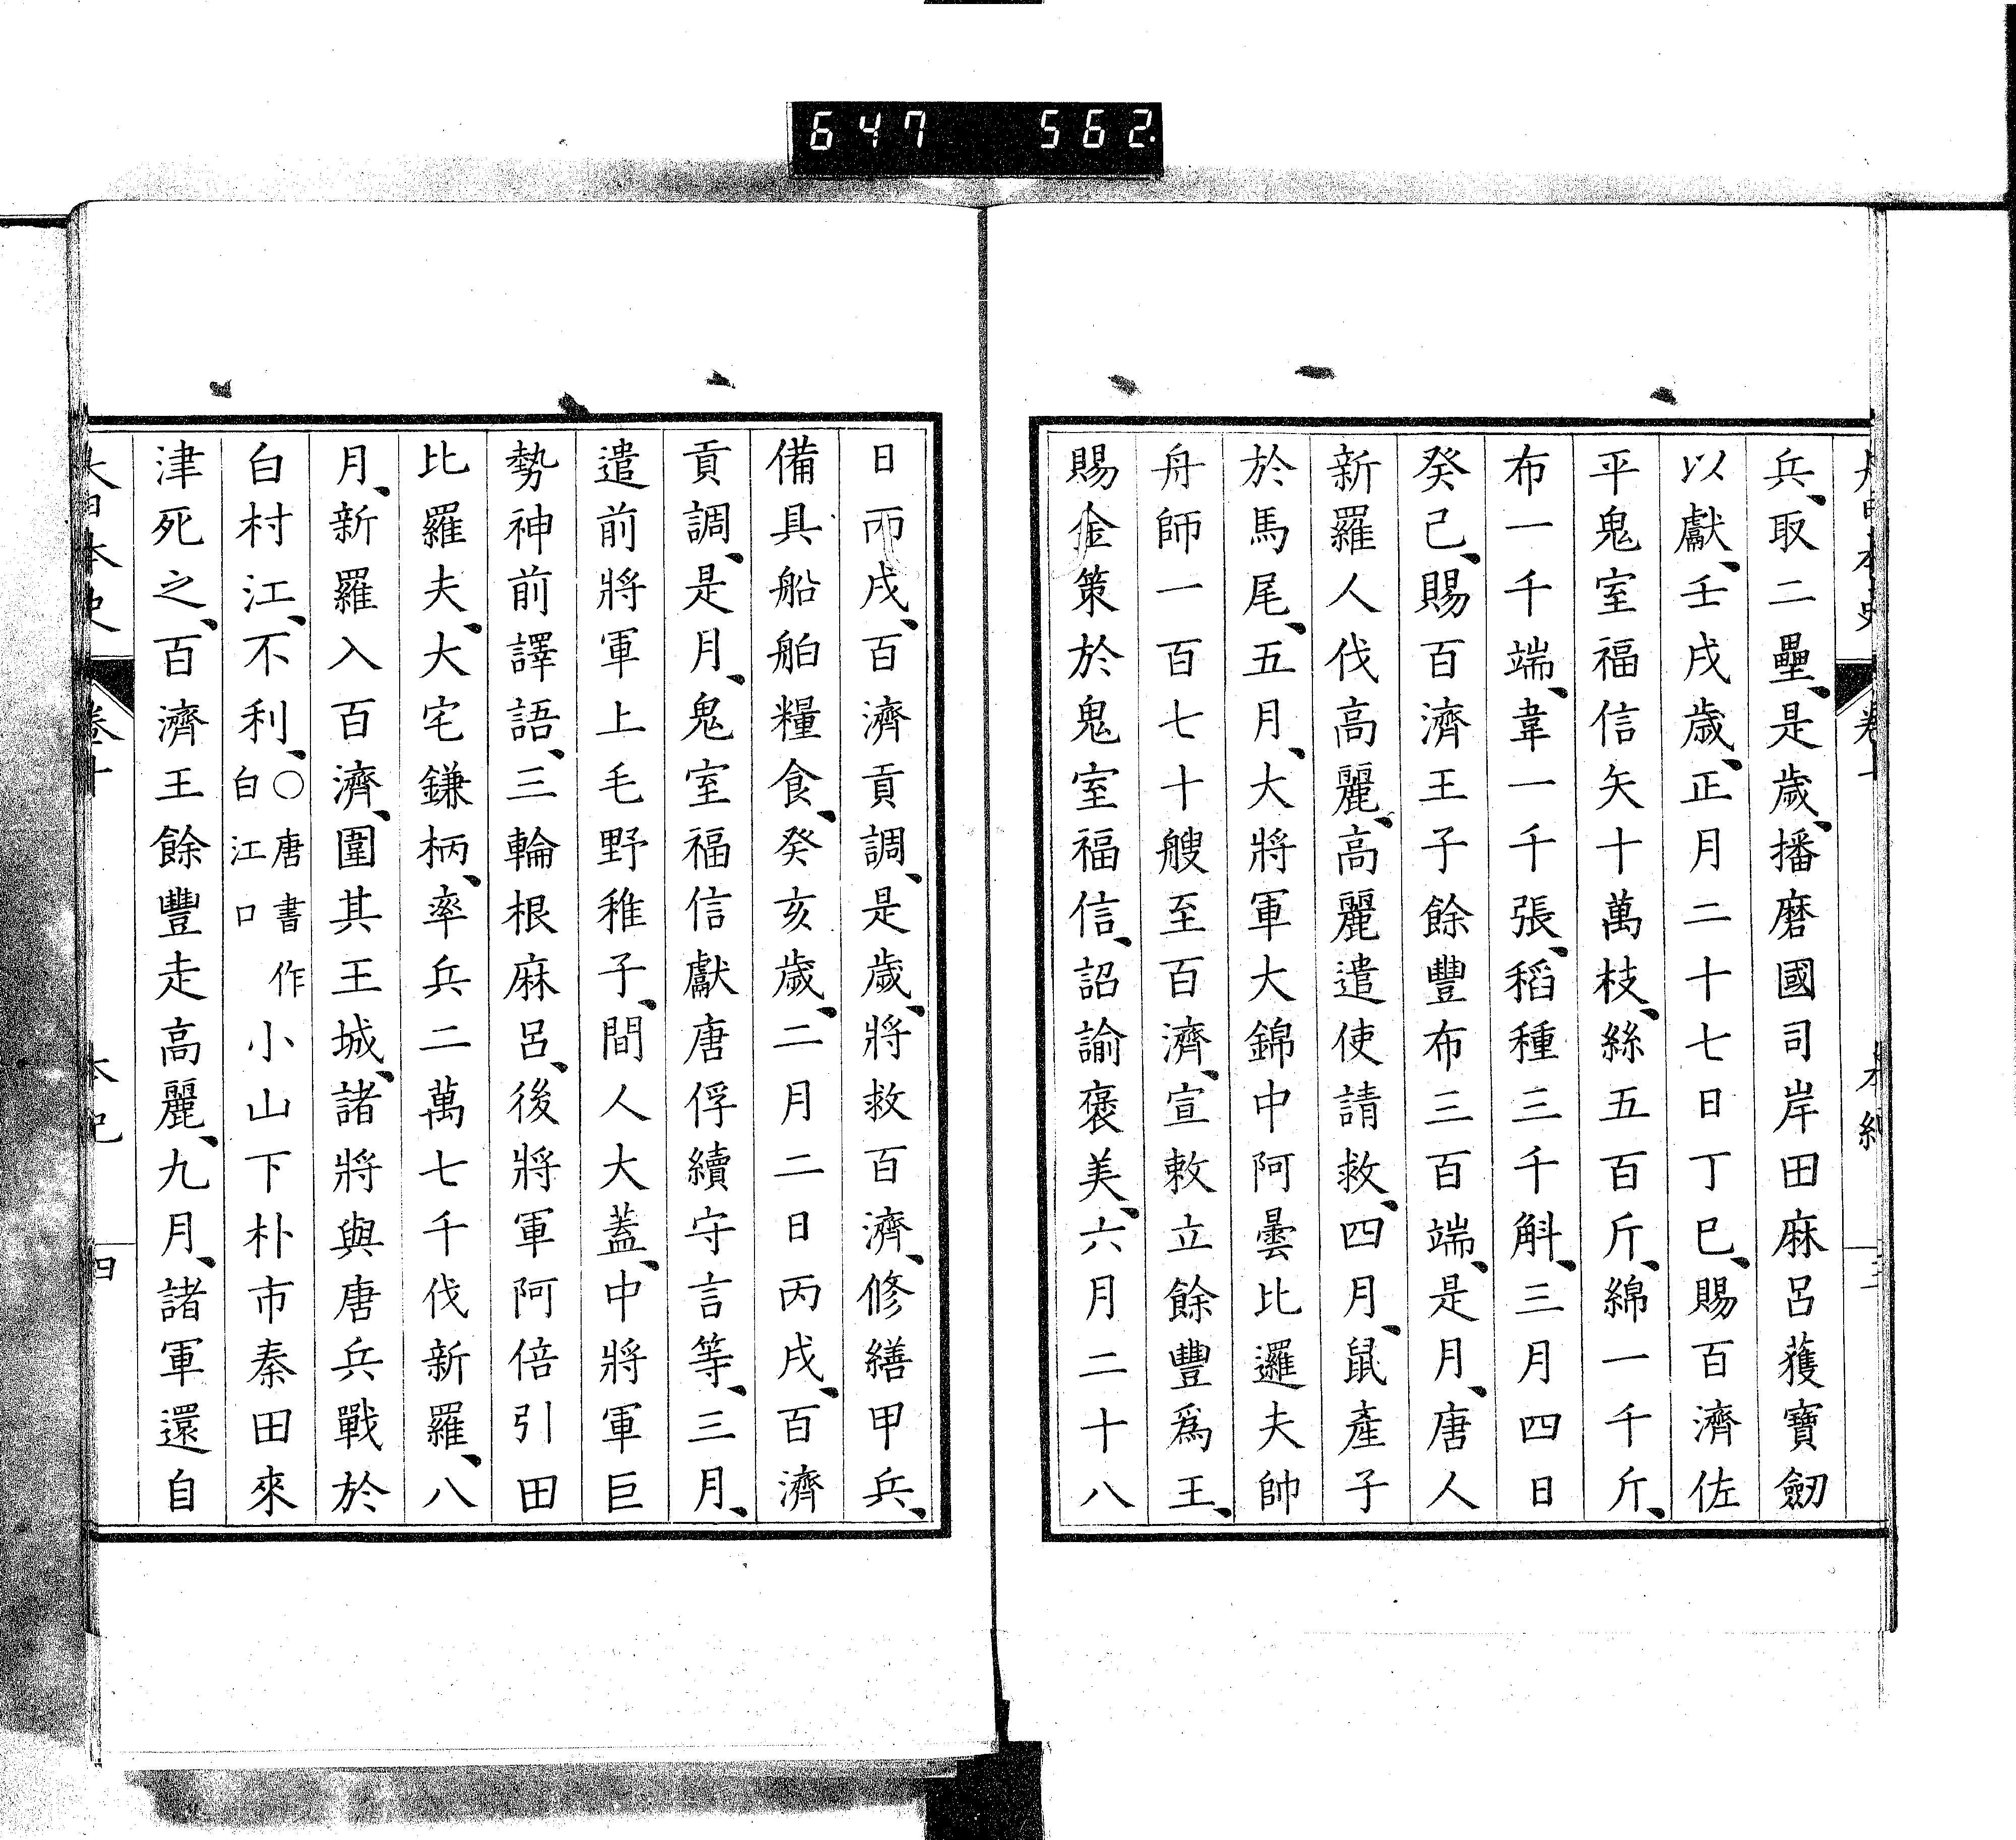 647 562.
兵、取二壘、是歲、播磨國司岸田麻呂獲寶劒
以獻、壬戌歲、正月二十七日丁巳、賜百濟佐
平鬼室福信矢十萬枝、絲五百斤、綿一千斤、
布一千端、韋一千張、稻種三千斛、三月四日
癸巳、賜百濟王子餘豐布三百端、是月、唐人
新羅人伐高麗、高麗遣使請救、四月、鼠產子
於馬尾、五月、大將軍大錦中阿曇比邏夫帥
舟師一百七十艘至百濟、宣敕立餘豐爲王、
賜金策於鬼室福信、詔諭褒美、六月二十八
日丙戌、百濟貢調、是歲、將救百濟、修繕甲兵、
備具船舶糧食、癸亥歲、二月二日丙戌、百濟
貢調、是月、鬼室福信獻唐俘續守言等、三月、
遣前將軍上毛野稚子、間人大蓋、中將軍巨
勢神前譯語、三輪根麻呂、後將軍阿倍引田
比羅夫、大宅鎌柄、率兵二萬七千伐新羅、八
月、新羅入百濟、圍其王城、諸將與唐兵戰於
白村江、不利、○唐書作白江口小山下朴市秦田來
津死之、百濟王餘豐走高麗、九月、諸軍還自
大日本史 卷十 本紀 四